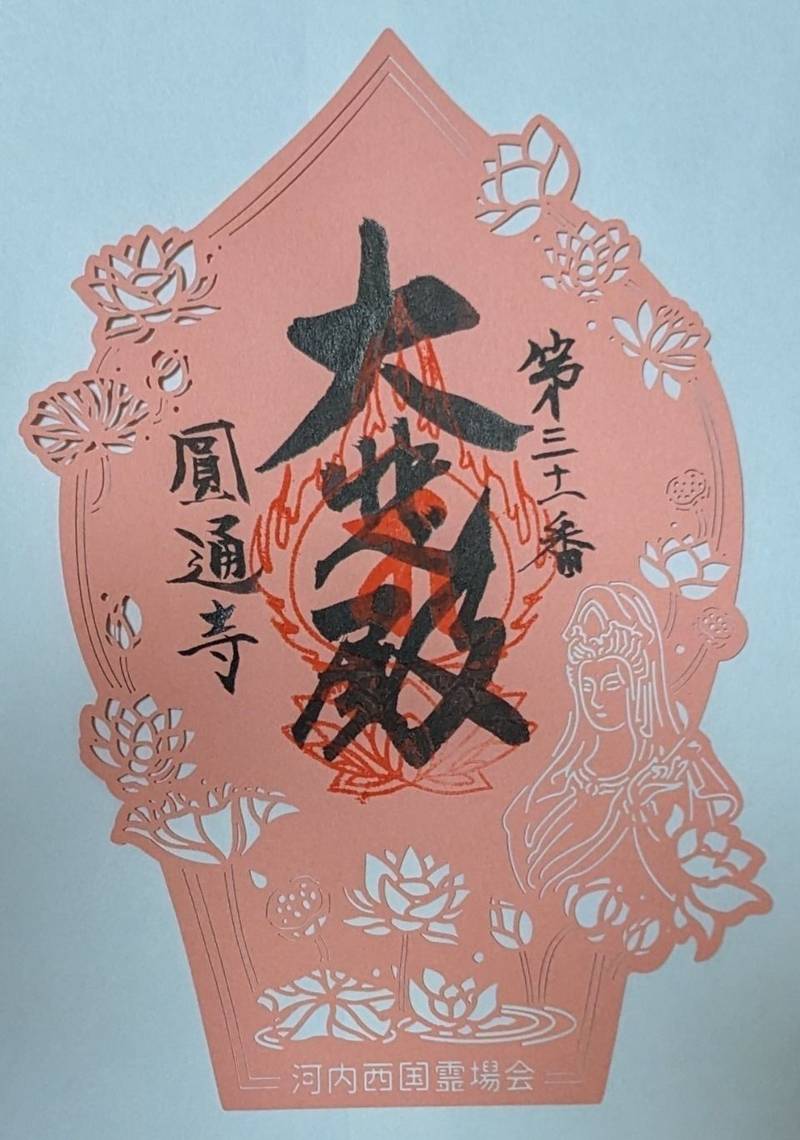 第三十一番
大悲殿
圓通寺
河内西国霊場会